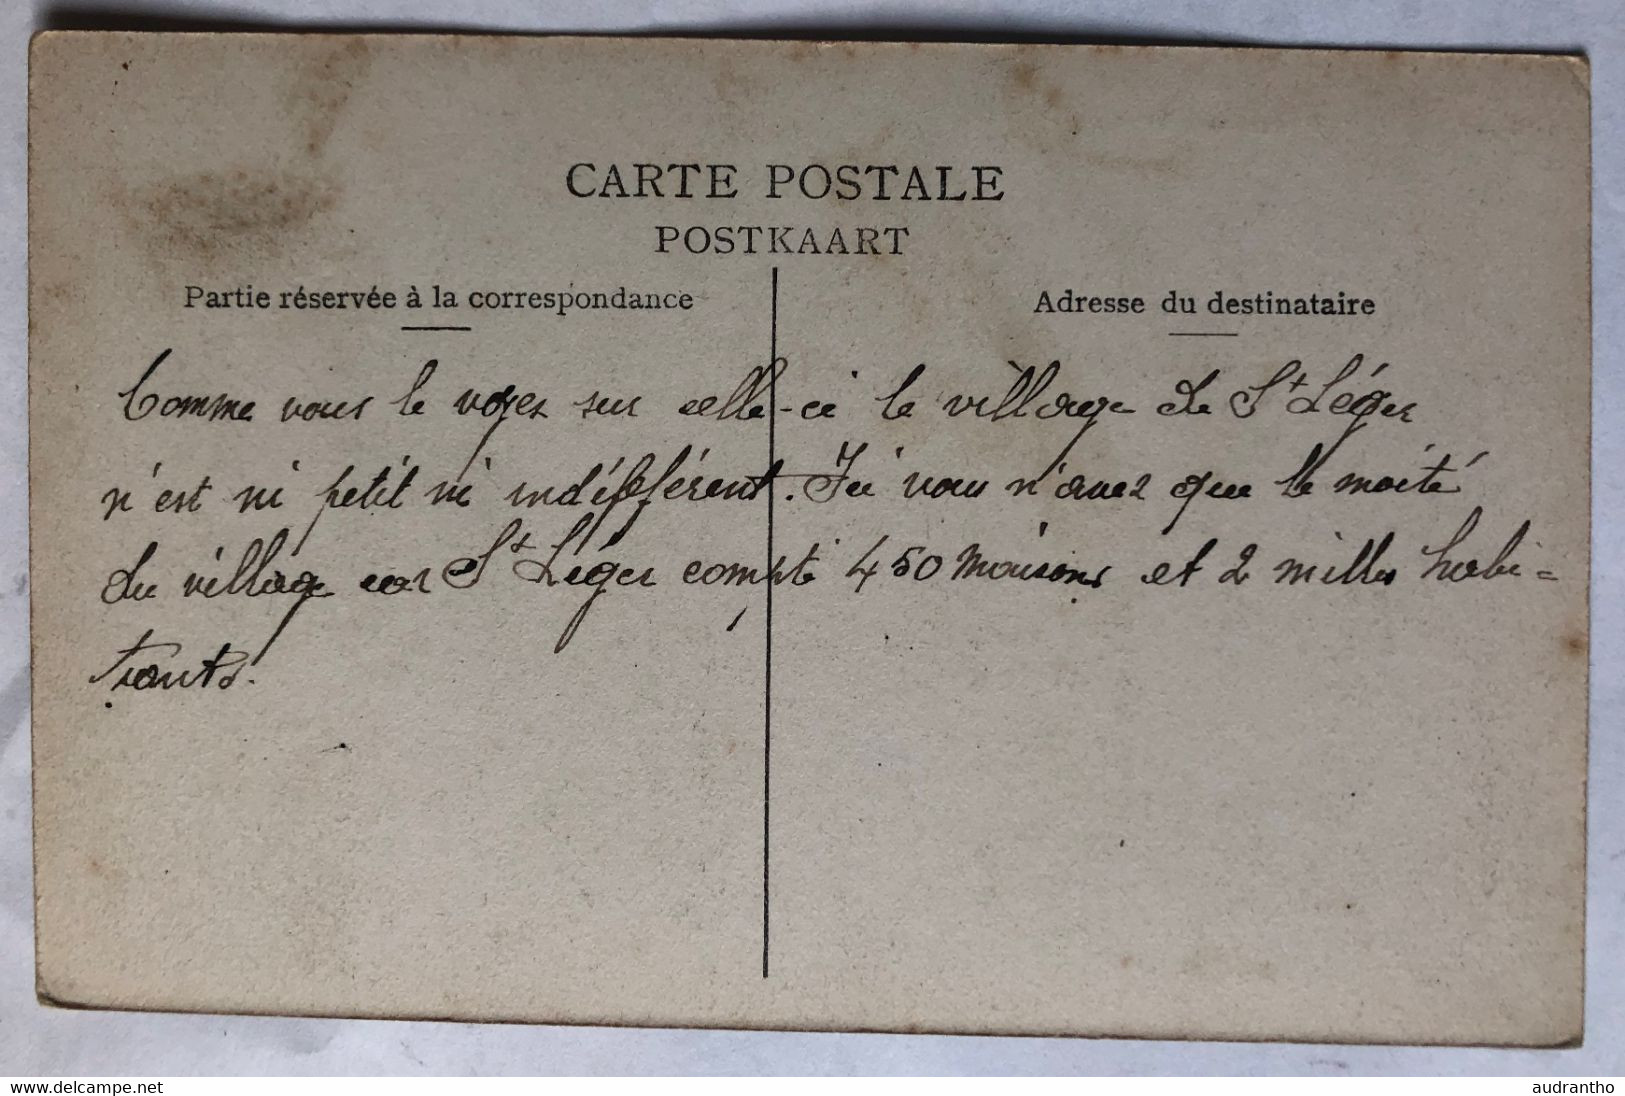 CARTE POSTALE
POSTKAART
Partie réservée à la correspondance
Adresse du destinataire
Comme vous le voyez sur celle-ci le village de St Léger
n'est ni petit ni indéfférent. Ici vous n'avez que la moité
du village car St Léger compte 450 maisons et 2 milles habi=
tants.
www.delcampe.net
audrantho